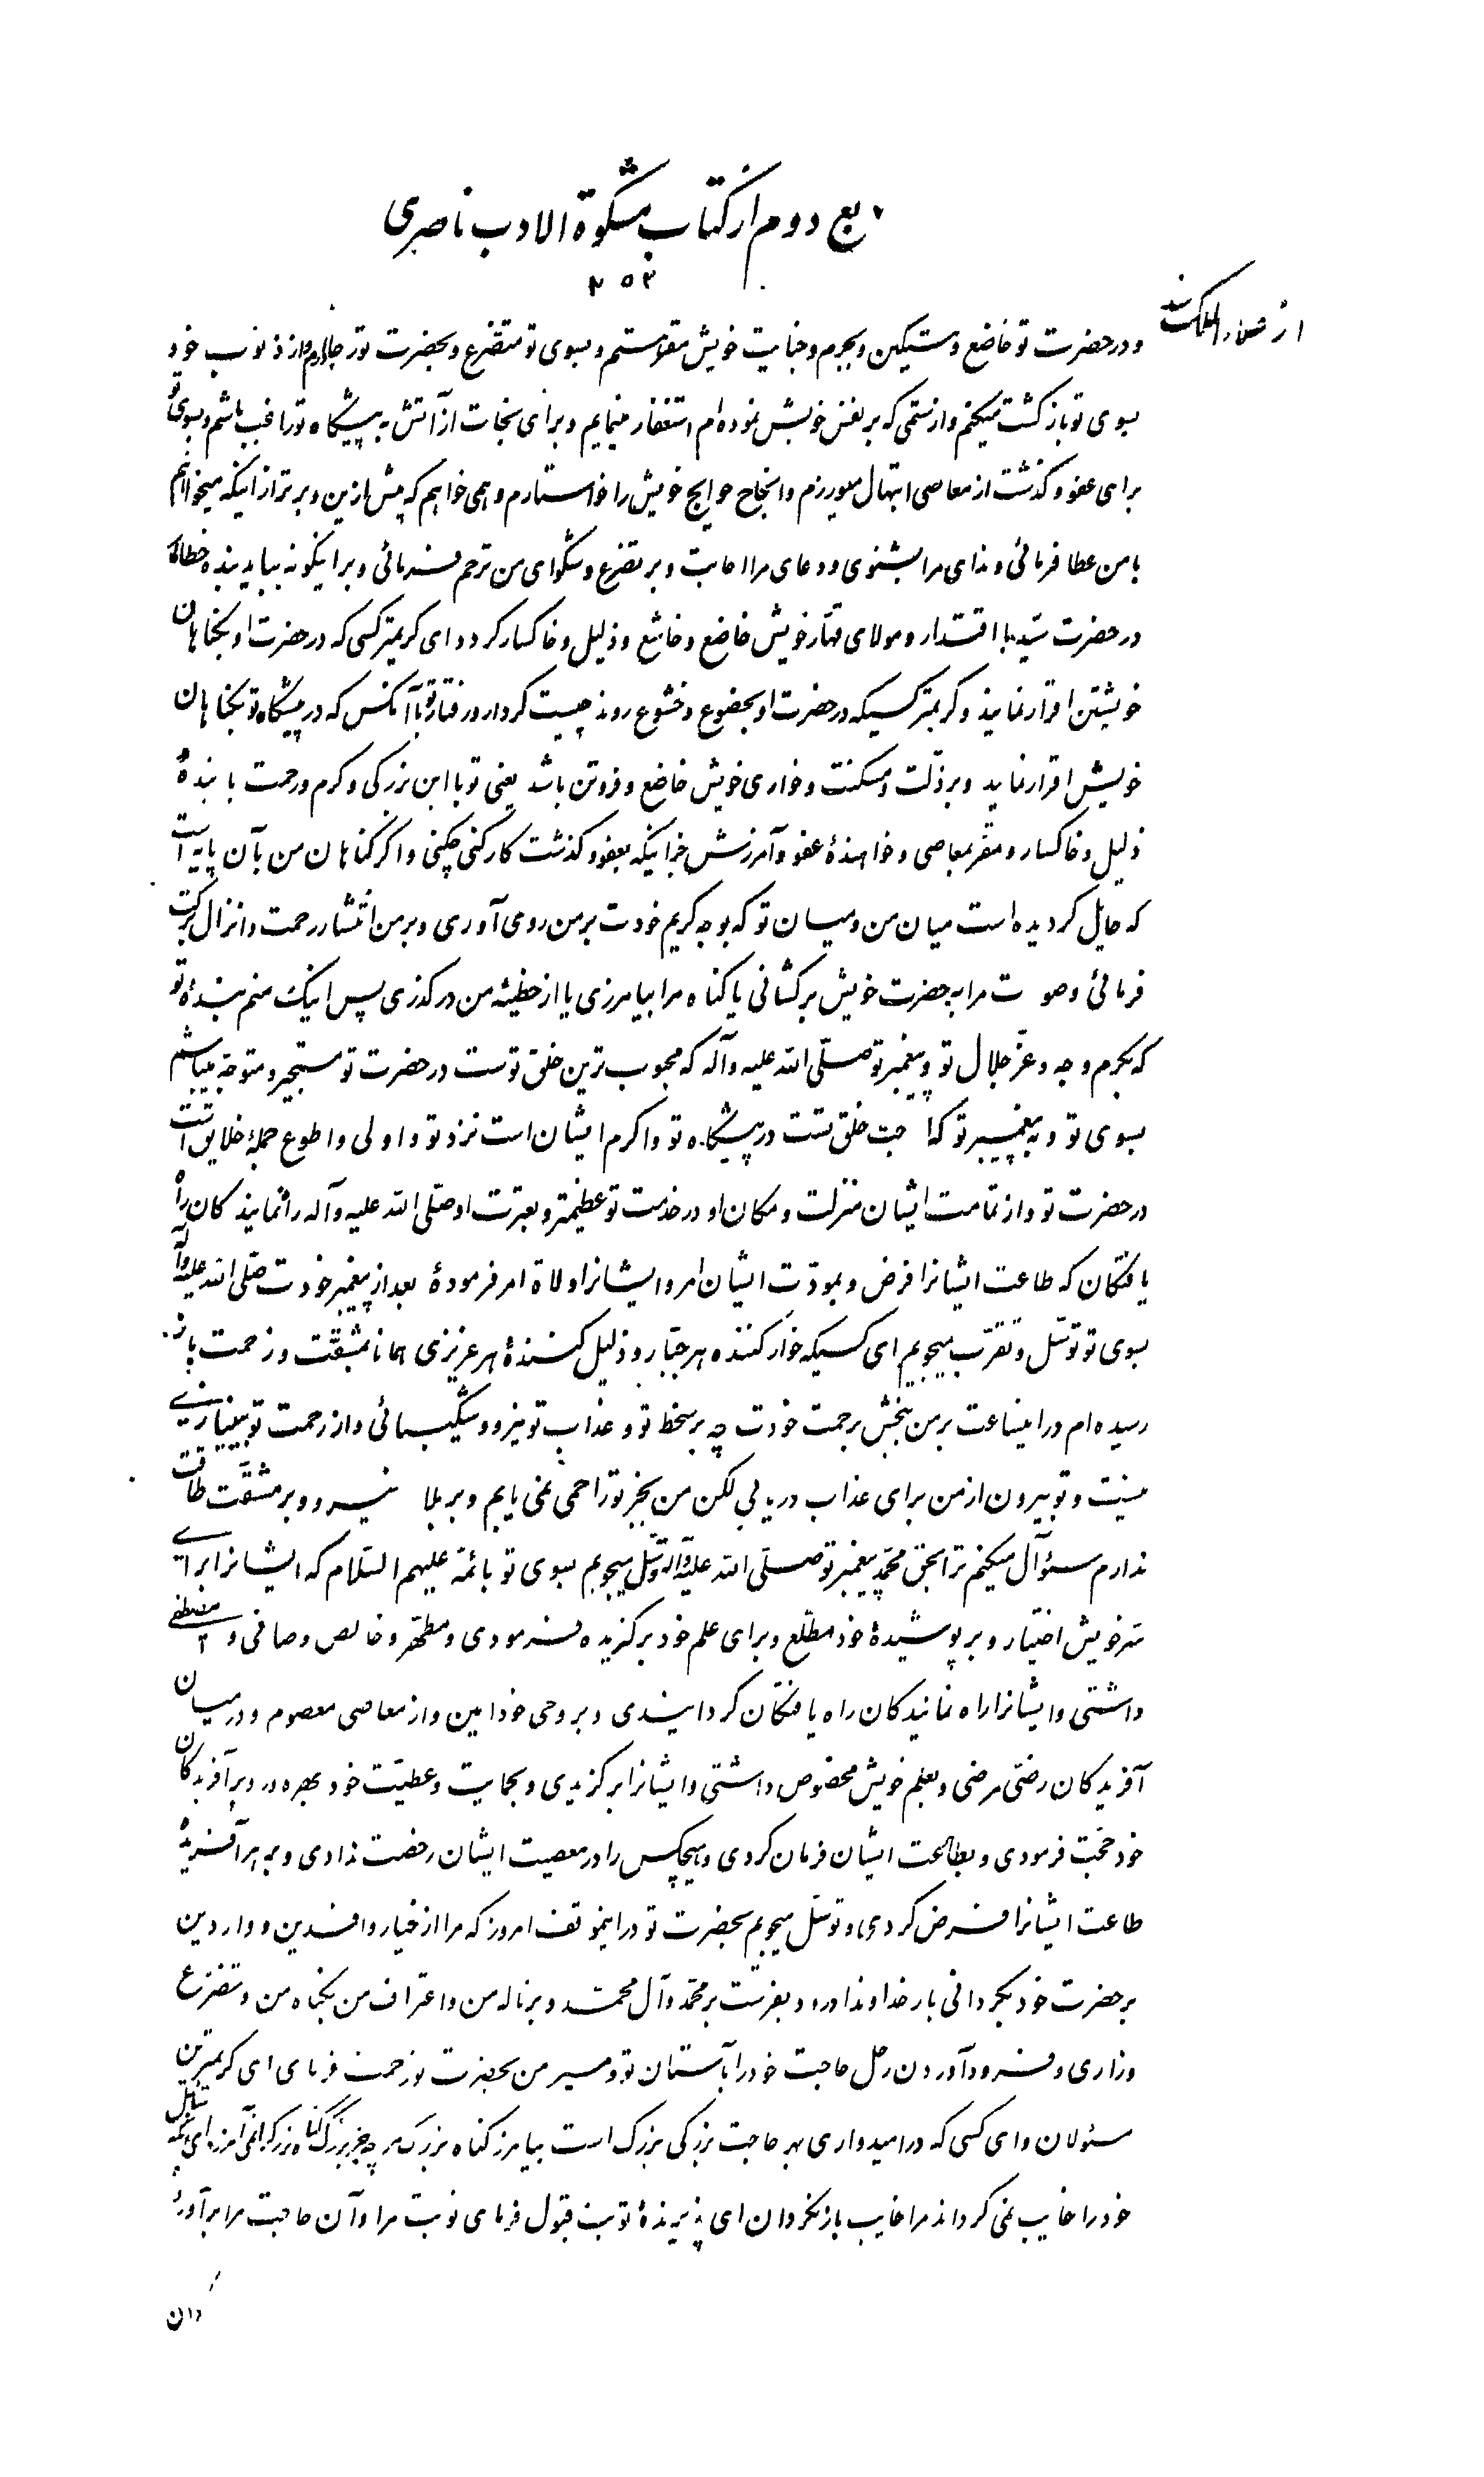 ربع دوم از کتاب مشکوة الادب ناصری
۲۵۳
از
و در حضرت تو خاضع و مستکین و بجرم و جنایت خویش مقر هستم و بسوی تو متضرع و بحضرت تو از ذنوب خود
بسوی تو بازگشت میکنم و از ستمی که بر نفس خویش نموده‌ام استغفار مینمایم و برای نجات از آتش به پیشگاه تو راغب باشم و بسوی تو
برای عفو و گذشت از معاصی ابتهال میورزم و انجاح حوایج خویش را خواستارم و همی خواهم که پیش ازین و برتر از اینکه میخوانم
با من عطا فرمائی و ندای مرا بشنوی و دعای مرا اجابت و بر تضرع و شکوای من ترحم فرمائی و براینگونه بباید بنده خطاکار
در حضرت سید با اقتدار و مولای قهار خویش خاضع و خاشع و ذلیل و خاکسار گردد ای کریمتر کسی که در حضرت او بگناهان
خویشتن اقرار نمایند و کریمتر کسیکه در حضرت او بخضوع و خشوع روند چیست کردار و رفتار تو با آنکس که در پیشگاه تو بگناهان
خویش اقرار نماید و بر ذلت و مسکنت و خواری خویش خاضع و فروتن باشد یعنی تو با این بزرگی و کرم و رحمت با بنده
ذلیل و خاکسار و مقر بمعاصی و خواهندهٔ عفو و آمرزش جز اینکه بعفو و گذشت کار کنی چکنی و اگر گناهان من بآن پایه است
که حایل گردیده است میان من و میان تو که بوجه کریم خودت بر من روی آوری و بر من انتشار رحمت و انزال برکت
فرمائی و صوت مرا به حضرت خویش برکشانی یا گناه مرا بیامرزی یا از خطیئه من درگذری پس اینک منم بندهٔ تو
که بکرم وجه و عز جلال تو و پیغمبر تو صلّی الله علیه و آله که محبوب ترین خلق توست در حضرت تو مستجیر و متوجه میباشم
بسوی تو و به پیغمبر تو که احب خلق تست در پیشگاه تو و اکرم ایشان است نزد تو و اولی و اطوع جملهٔ خلایق است
در حضرت تو و از تمامت ایشان منزلت و مکان او در خدمت تو عظیمتر و بعترت او صلّی الله علیه و آله راهنمایندگان راه
یافتگان که طاعت ایشانرا فرض و بمودّت ایشان امر و ایشانرا ولاة امر فرمودهٔ بعد از پیغمبر خودت صلّی الله علیه وآله
بسوی تو توسّل و تقرّب میجویم ای کسیکه خوار کننده هر جبّار و ذلیل کنندهٔ هر عزیزی همانا مشقّت و زحمت
رسیده‌ام در اینساعت بر من ببخش برحمت خودت چه بر سخط تو و عذاب تو نیرو و شکیبائی و از رحمت تو بینیازی
نیست و تو بیرون از من برای عذاب دریابی لکن من بجز تو راحمی نمی یابم و بر بلا نیرو و بر مشقّت طاقت
ندارم سئوال میکنم ترا بحق محمّد پیغمبر تو صلّی الله علیه وآله و توسّل میجویم بسوی تو بائمّه علیهم السّلام که ایشانرا برای
سرّ خویش اختیار و بر پوشیدهٔ خود مطّلع و برای علم خود برگزیده فرمودی و مطهّر و خالص و صافی و مصطفی
داشتی و ایشانرا راه نمایندگان راه یافتگان گردانیدی و بر وحی خود امین و از معاصی معصوم و در میان
آفریدگان رضیّ مرضی و بعلم خویش مخصوص داشتی و ایشانرا برگزیدی و بحمایت و عطیّت خود بهره‌ور و بر آفریدگان
خود حجّت فرمودی و بطاعت ایشان فرمان کردی و هیچکس را در معصیت ایشان رخصت ندادی و بر هر آفریدهٔ
طاعت ایشانرا فرض کردی و توسّل میجویم بحضرت تو در اینموقف امروز که مرا از خیار وافدین و واردین
بر حضرت خود بگردانی بار خداوندا درود بفرست بر محمّد و آل محمّد و بر ناله من و اعتراف من بگناه من و تضرّع
و زاری و فرود آوردن رحل حاجت خود را بآستان تو و مسیر من بحضرت تو رحمت فرمای ای کریمترین
مسئولان و ای کسی که در امیدواری بهر حاجت بزرگی بزرگ است بیامرز گناه بزرگ مرا چه جز بزرگ گناه بزرگ را نمی آمرزد ای آنکه سائل
خود را خایب نمی گرداند مرا خایب بازنگردان ای پذیرندهٔ توبت قبول فرمای توبت مرا و آن حاجت مرا برآور